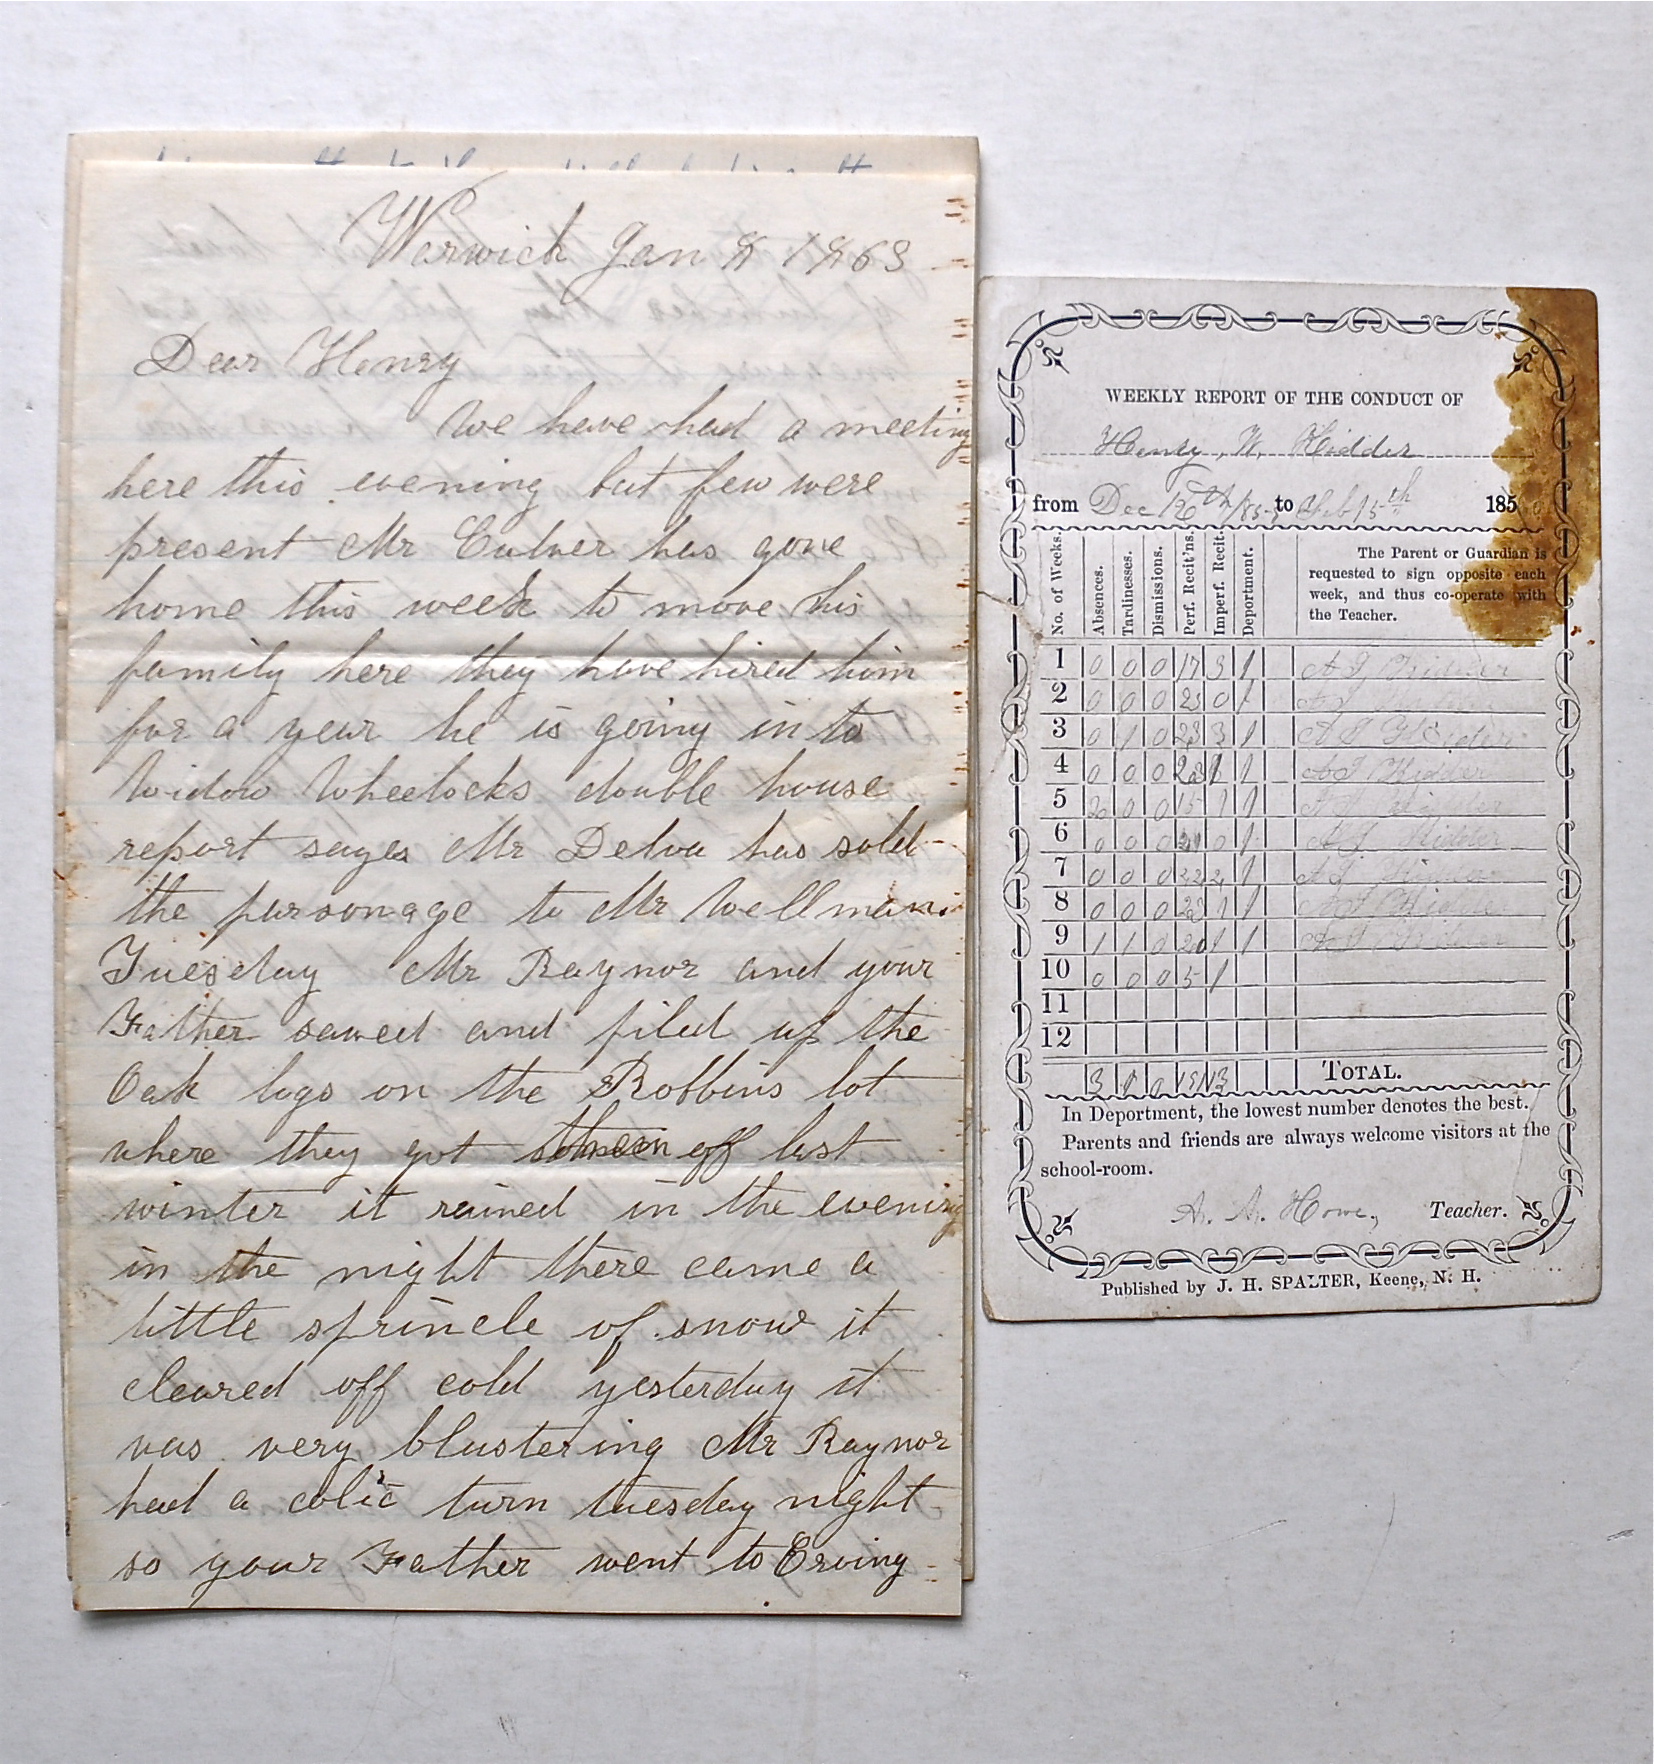 Warwick Jan 8 1863
Dear Henry
We have had a meeting
here this evening but few were
present Mr Culver has gone
home this week to move his
family here they have hired him
for a year he is going in to
Widow Wheelocks double house
report sayes Mr Delva has sold
the parsonage to Mr Wellman.
Tuesday Mr Raynor and your
Father sawed and piled up the
Oak logs on the Robbins lot
where they got them off last
winter it rained in the evening
in the night there came a
little sprincle of snow it
cleared off cold yesterday it
was very blustering Mr Raynor
had a colic turn tuesday night
so your Father went to Erving
WEEKLY REPORT OF THE CONDUCT OF
Henry, W. Kidder
from Dec to Feb 15th 185
No. of Weeks. Absences. Tardinesses. Dismissions. Perf. Recit'ns. Imperf. Recit. Deportment.
The Parent or Guardian is
requested to sign opposite each
week, and thus co-operate with
the Teacher.
1 0 0 0 17 3 1 A J Kidder
2 0 0 0 23 0 1
3 0 1 0 23 3 1 A J Kidder
4 0 0 0 1 A J Kidder
5 0 0 15 1 1 A J Kidder
6 0 0 0 0 1 A J Kidder
7 0 0 0 22 2 1 A J Kidder
8 0 0 0 22 1 1 A J Kidder
9 1 1 0 20 1 1 A J Kidder
10 0 0 0 5 1
11
12
3 13 TOTAL.
In Deportment, the lowest number denotes the best.
Parents and friends are always welcome visitors at the
school-room.
A. A. Howe, Teacher.
Published by J. H. SPALTER, Keene, N. H.